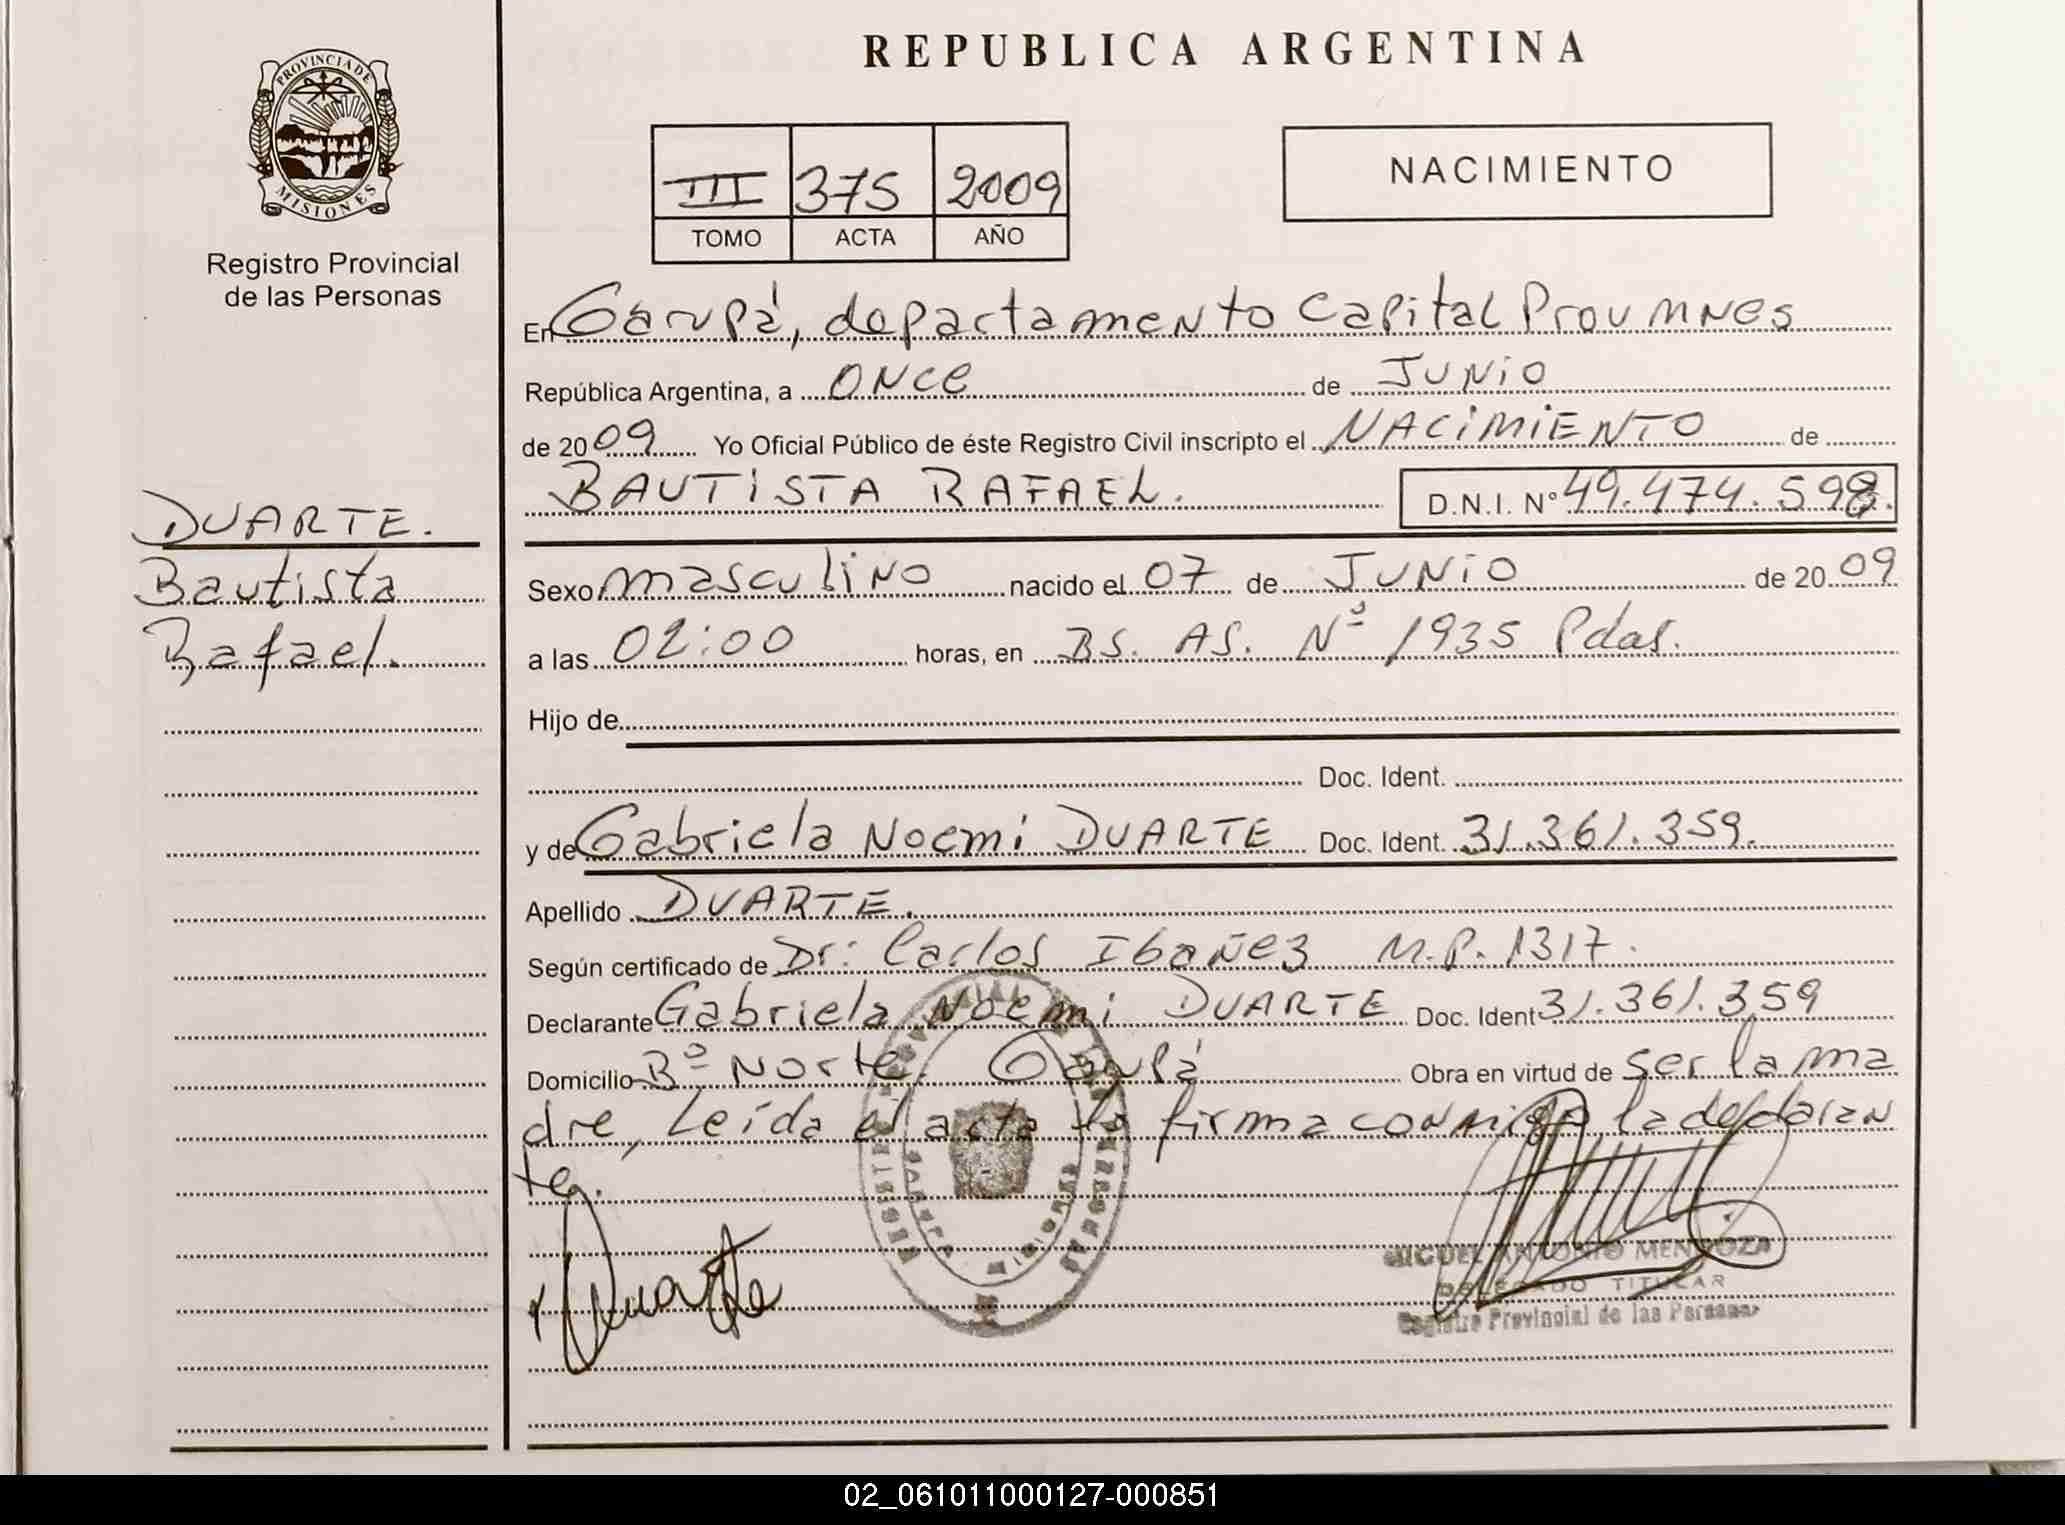 PROVINCIA DE
MISIONES
Registro Provincial
de las Personas
DUARTE.
Bautista
Rafael.
REPUBLICA ARGENTINA
III 375 2009
TOMO ACTA AÑO
NACIMIENTO
En Garupá, departamento Capital Prov Mnes
República Argentina, a ONCE de JUNIO
de 2009 Yo Oficial Público de éste Registro Civil inscripto el NACIMIENTO de
BAUTISTA RAFAEL. D.N.I. Nº 49.474.598.
Sexo masculino nacido el 07 de JUNIO de 2009
a las 02:00 horas, en BS. AS. Nº 1935 Pdas.
Hijo de
Doc. Ident.
y de Gabriela Noemi DUARTE Doc. Ident. 31.361.359.
Apellido DUARTE.
Según certificado de Dr: Carlos Ibañez M.P. 1317.
Declarante Gabriela Noemi DUARTE Doc. Ident 31.361.359
Domicilio Bº Norte Garupá Obra en virtud de ser la ma
dre, Leída el acta la firma conmigo la declaran
te.
Duarte
MIGUEL ANTONIO MENDOZA
DELEGADO TITULAR
Registro Provincial de las Personas
02_061011000127-000851